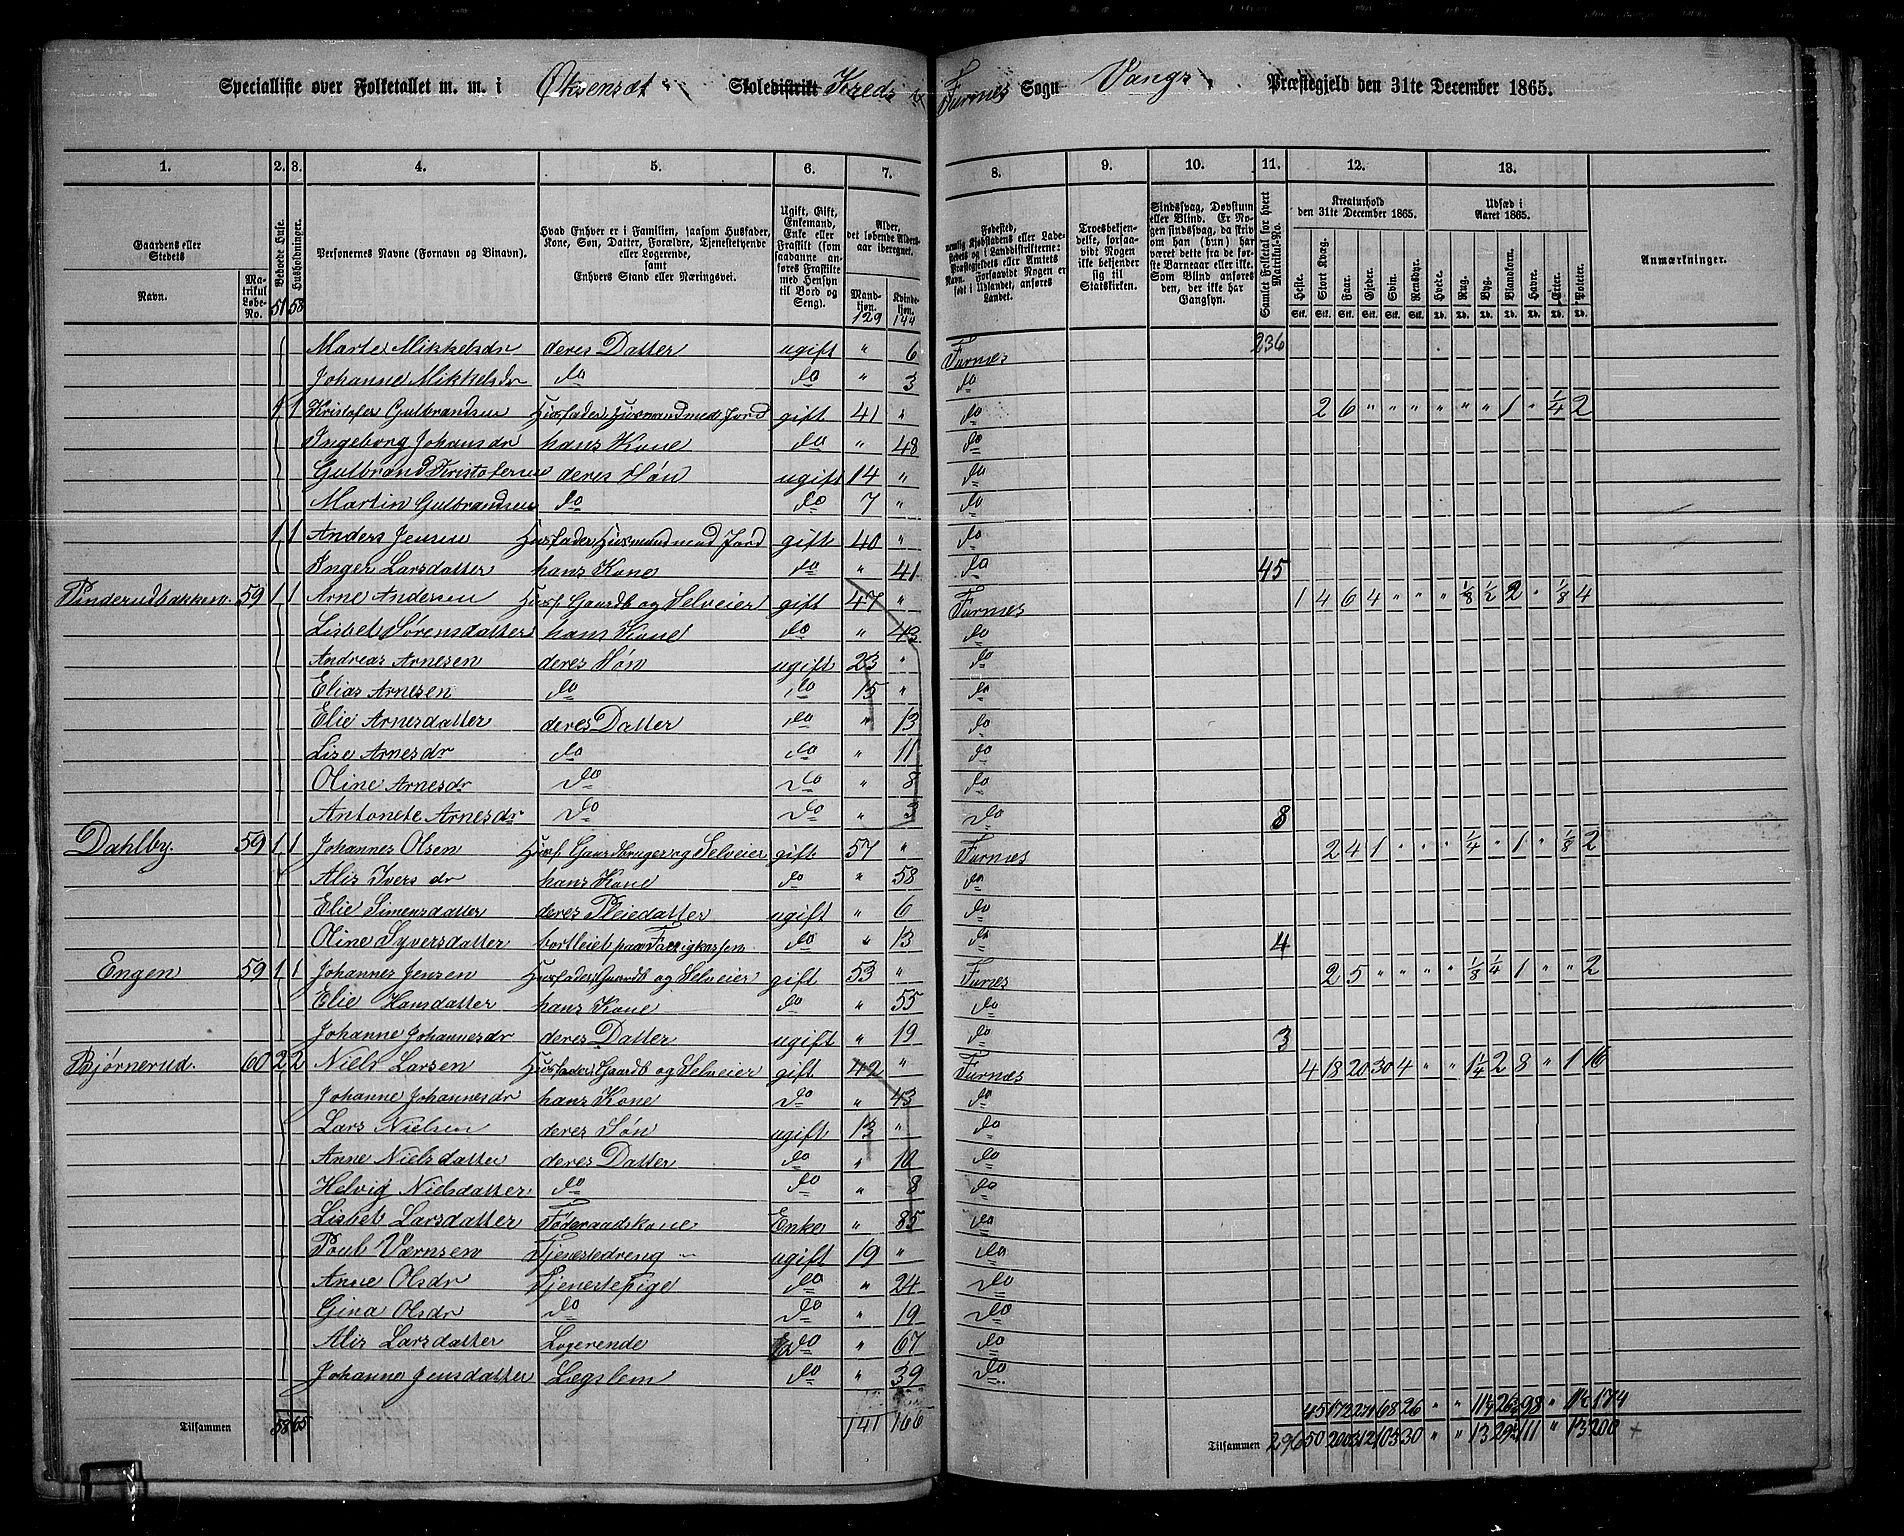 Specialliste over Folketallet m. m. i Skoledistrikt Kreds Furnes Sogn Vangs Præstegjeld den 31te December 1865.
1. 2. 3. 4. 5. 6. 7. 8. 9. 10. 11. 12. 13.
Gaardens eller Stedets
Navn.
Matrikul Løbe-No.
Beboede Huse. 51
Husholdninger. 58
Personernes Navne (Fornavn og Binavn).
Hvad Enhver er i Familien, saasom Husfader, Kone, Søn, Datter, Forældre, Tjenestetyende eller Logerende, samt Enhvers Stand eller Næringsvei.
Ugift, Gift, Enkemand, Enke eller Fraskilt (som saadanne anføres Fraskilte med Hensyn til Bord og Seng).
Alder, det løbende Aldersaar iberegnet.
Mandkjøn. 129
Kvindekjøn. 144
Fødested, nemlig Kjøbstadens eller Ladestedets og i Landdistrikterne: Præstegjeldets eller Amtets Navn. Forsaavidt Nogen er født i Udlandet, anføres Landet.
Troesbekjendelse, forsaavidt Nogen ikke bekjender sig til Statskirken.
Sindssvag, Døvstum eller Blind. Er Nogen sindssvag, da skriv om han (hun) har været dette fra de første Barneaar eller ikke. Som Blind anføres den, der ikke har Gangsyn.
Samlet Folketal for hvert Matrikul-No.
Kreaturhold den 31te December 1865.
Heste. Stort Kvæg. Faar. Gjeder. Svin. Rensdyr.
Udsæd i Aaret 1865.
Hvede. Rug. Byg. Blandkorn. Havre. Erter. Poteter.
Anmærkninger.
Marte Mikkelsdr deres Datter ugift " 6 Furnes 236
Johanne Mikkelsdr do do " 3 do
1 1 Kristofer Gulbrandsen Husfader, Husmand med Jord gift 41 " do 2 6 " " " " " " 1 " 1/4 2
Ingeborg Johansdr hans Kone do " 48 do
Gulbrand Kristofersen deres Søn ugift 14 " do
Martin Gulbrandsen do do 7 " do
1 1 Anders Jensen Husfader, Husmand med Jord gift 40 " do
Inger Larsdatter hans Kone do " 41 do 45
Pinderudbakken. 59 1 1 Arne Andersen Husf Gaardb og Selveier gift 47 " Furnæs 1 4 6 4 " " " 1/8 1/2 2 " 1/8 4
Lisbet Sørensdatter hans Kone do " 43 do
Andreas Arnesen deres Søn ugift 23 " do
Elias Arnesen do do 15 " do
Elie Arnesdatter deres Datter do " 13 do
Lise Arnesdr do do " 11 do
Oline Arnesdr do do " 8 do
Antonete Arnesdr do do " 3 do 8
Dahlby. 59 1 1 Johannes Olsen Husf Gaardbruger og Selveier gift 57 " Furnæs 2 4 1 " " " 1/4 " 1 " 1/8 2
Alis Ivers dr hans Kone do " 58 do
Elie Simensdatter deres Pleiedatter ugift " 6 do
Oline Syversdatter bortleiet paa Fattigkassen do " 13 do 4
Engen 59 1 1 Johannes Jensen Husfader, Gaardb og Selveier gift 53 " Furnes 2 5 " " " " 1/8 1/4 1 " " 2
Elie Hansdatter hans Kone do " 55 do
Johanne Johannesdr deres Datter ugift " 19 do 3
Bjørnerud. 60 2 2 Niels Larsen Husfader, Gaardb og Selveier gift 42 " Furnæs 4 18 20 30 4 " " 1 1/4 2 8 " 1 16
Johanne Johannesdr hans Kone do " 43 do
Lars Nielsen deres Søn ugift 13 " do
Anne Nielsdatter deres Datter do " 10 do
Helvig Nielsdatter do do " 8 do
Lisbet Larsdatter Føderaadskone Enke " 85 do
Poul Værnsen Tjenestedreng ugift 19 " do
Anne Olsdr Tjenestepige do " 24 do
Gina Olsdr do do " 19 do
Alis Larsdatter Logerende do " 67 do
Johanne Jensdatter Lægslem do " 39 do
Tilsammen 58 65 141 166
Tilsammen 296 50 200 312 105 30 " " 13 111 " 13 200 +